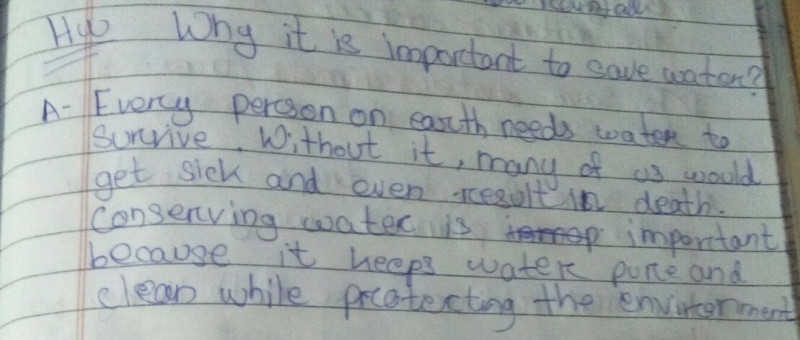 Hw Why it is important to save water?
A- Every person on earth needs water to
survive. Without it, many of us would
get sick and even result in death.
Conserving water is important
because it keeps water pure and
clean while protecting the environment